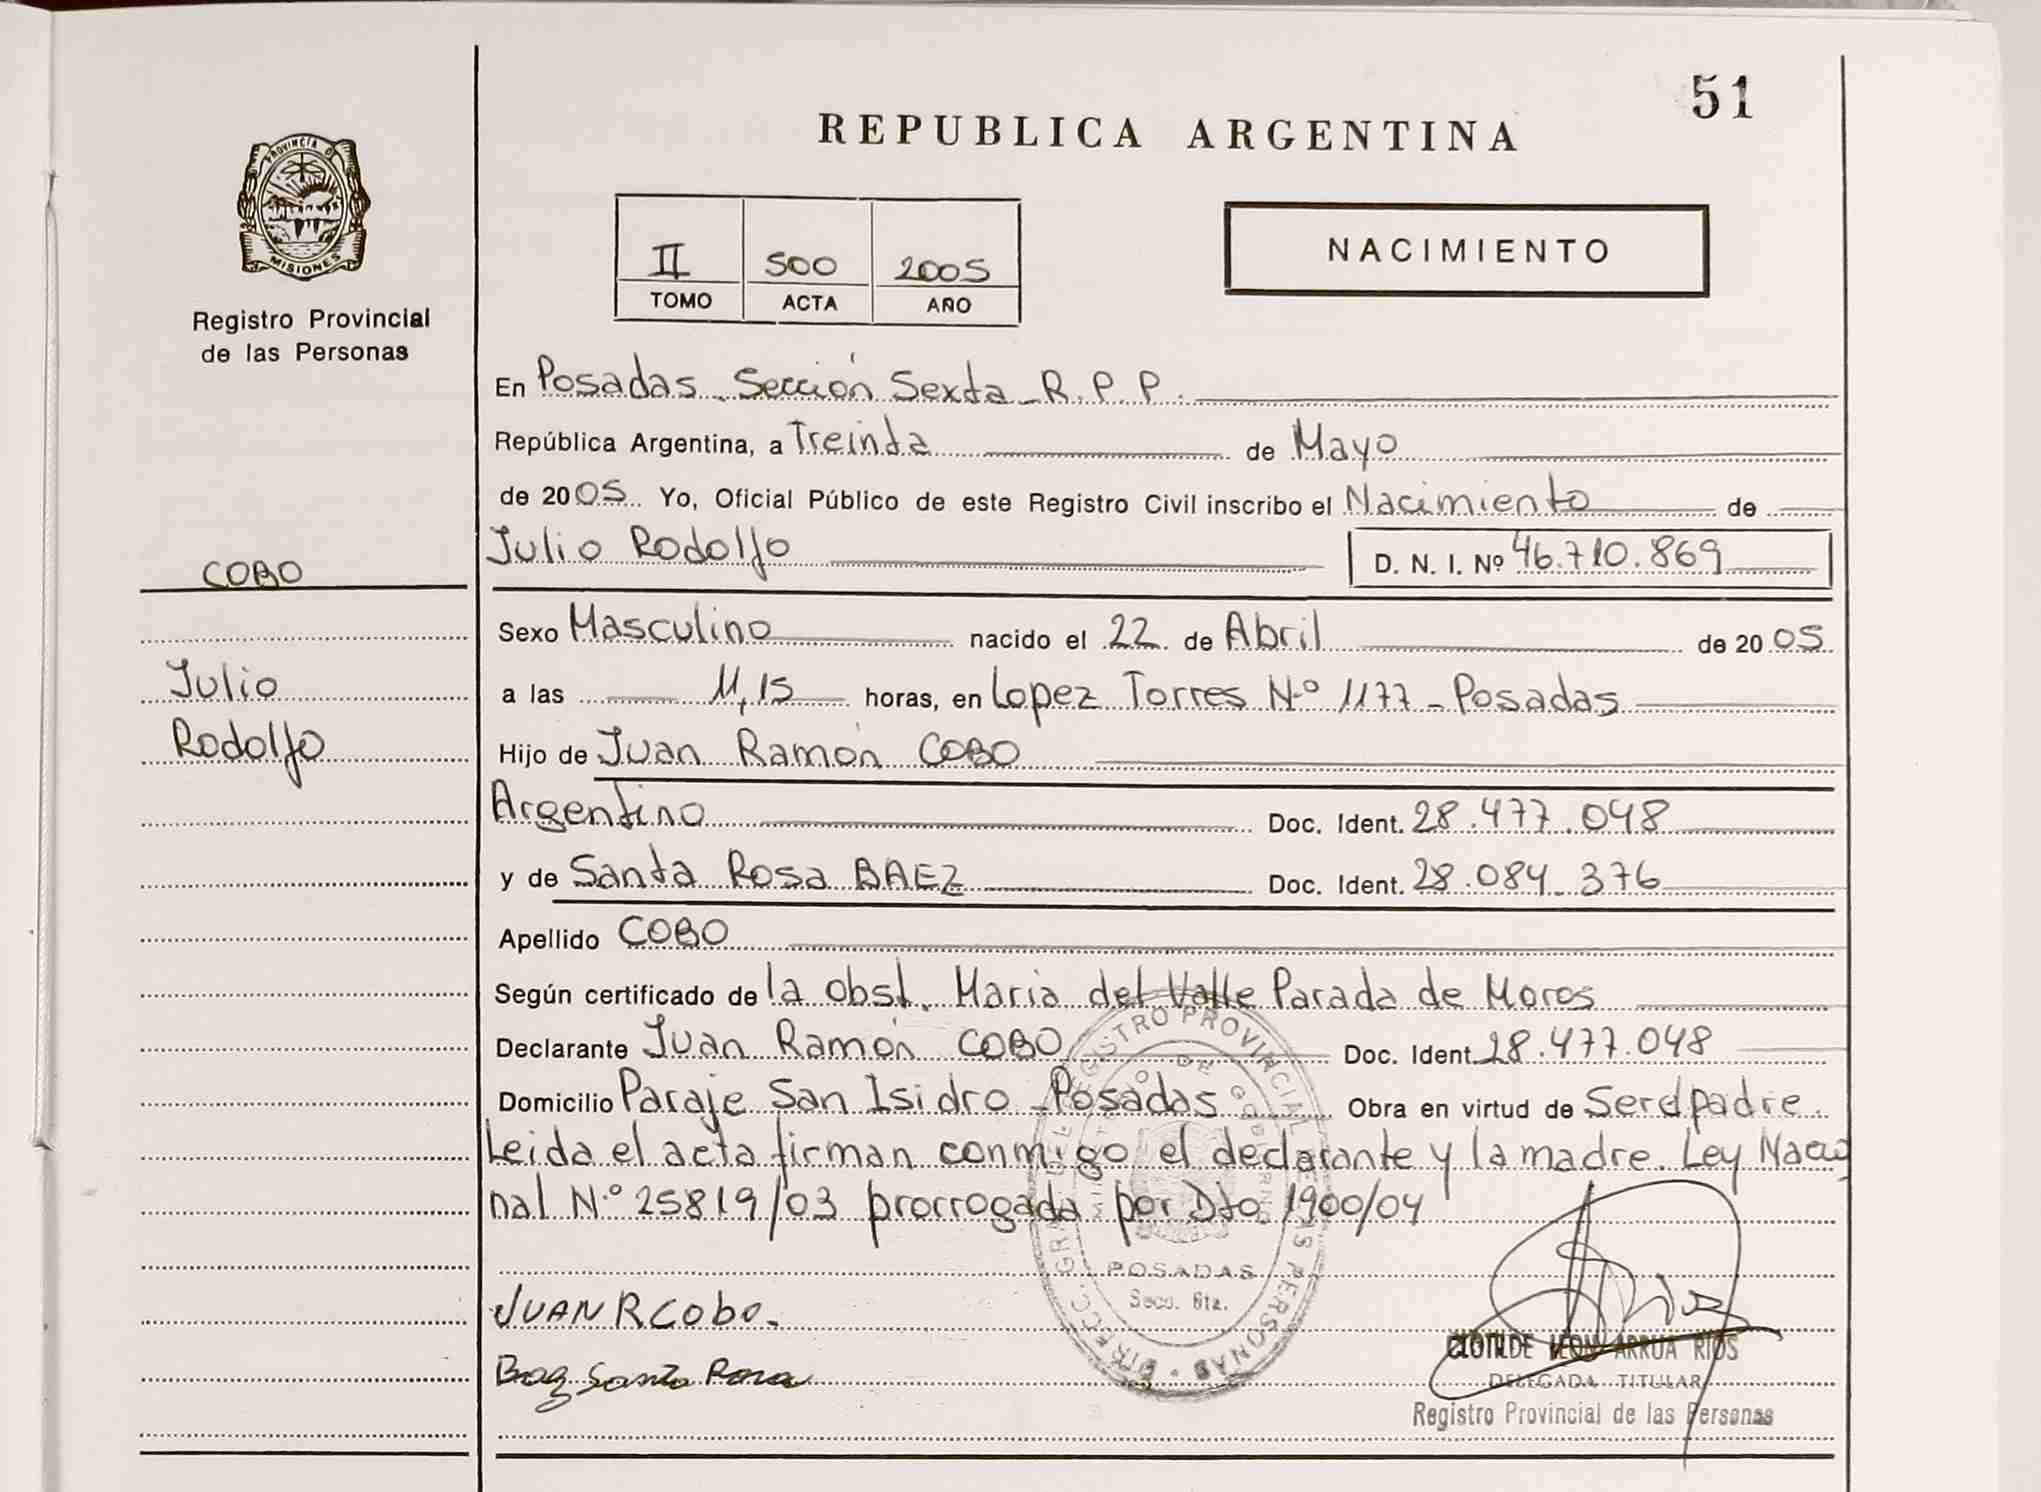 51
REPUBLICA ARGENTINA
PROVINCIA D
MISIONES
Registro Provincial
de las Personas
II 500 2005
TOMO ACTA AÑO
NACIMIENTO
En Posadas - Sección Sexta - R.P.P.
República Argentina, a Treinta de Mayo
de 2005 Yo, Oficial Público de este Registro Civil inscribo el Nacimiento de
Julio Rodolfo D. N. I. Nº 46.710.869
COBO
Sexo Masculino nacido el 22 de Abril de 2005
Julio
a las 11,15 horas, en Lopez Torres N.º 1177 - Posadas
Rodolfo
Hijo de Juan Ramón COBO
Argentino Doc. Ident. 28.477.048
y de Santa Rosa BAEZ Doc. Ident. 28.084.376
Apellido COBO
Según certificado de la obst. Maria del Valle Parada de Moros
Declarante Juan Ramón COBO Doc. Ident. 28.477.048
Domicilio Paraje San Isidro - Posadas Obra en virtud de Ser el padre.
Leida el acta firman conmigo el declarante y la madre. Ley Nacio
nal N.º 25819/03 prorrogada por Dto. 1900/04
DIRECC. GRAL. DEL REGISTRO PROVINCIAL DE LAS PERSONAS
MINISTERIO DE GOBIERNO
POSADAS
Secc. 6ta.
JUAN R Cobo.
Baez Santa Rosa
CLOTILDE LEON ARRUA RIOS
DELEGADA TITULAR
Registro Provincial de las Personas